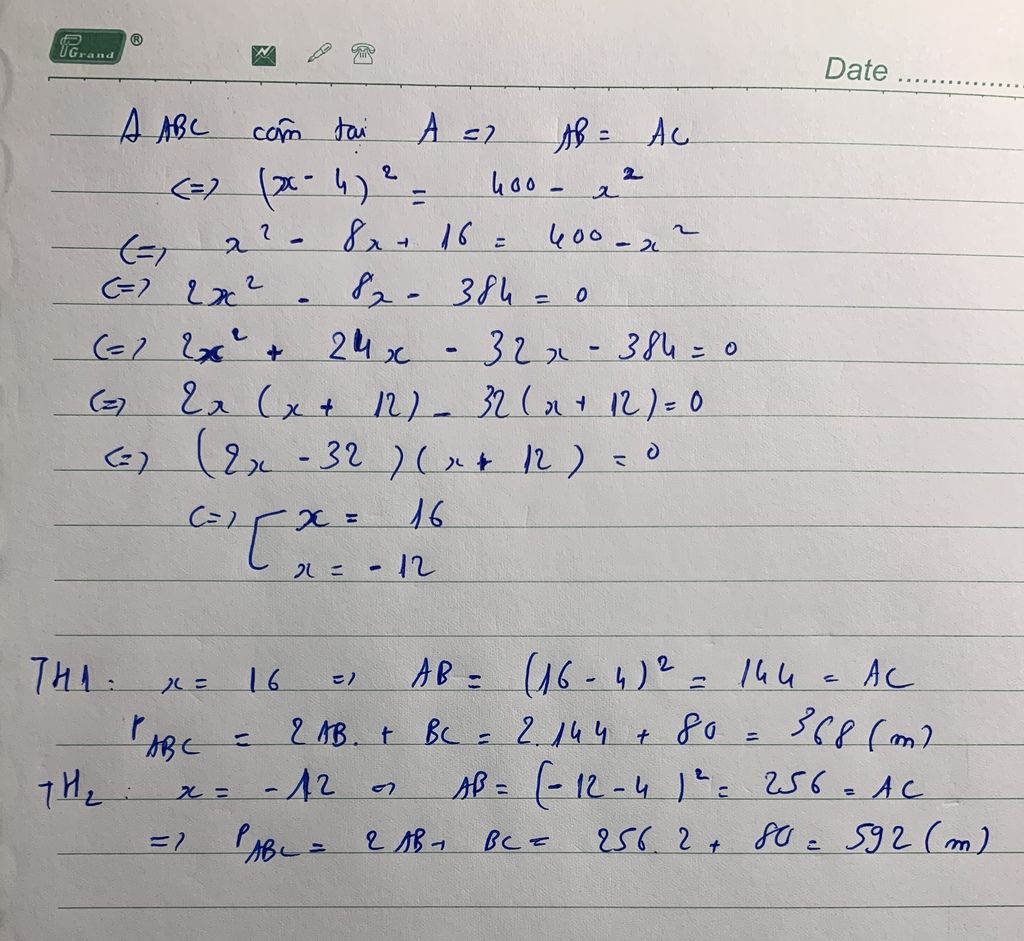 Grand ®
Date ................
Δ ABC cân tại A => AB = AC
<=> (x - 4)² = 400 - x²
<=> x² - 8x + 16 = 400 - x²
<=> 2x² - 8x - 384 = 0
<=> 2x² + 24x - 32x - 384 = 0
<=> 2x (x + 12) - 32(x + 12) = 0
<=> (2x - 32)(x + 12) = 0
<=> [ x = 16
x = -12
TH1: x = 16 => AB = (16 - 4)² = 144 = AC
P ABC = 2 AB. + BC = 2.144 + 80 = 368 (m)
TH2: x = -12 => AB = (-12 - 4)² = 256 = AC
=> P ABC = 2 AB + BC = 256.2 + 80 = 592 (m)